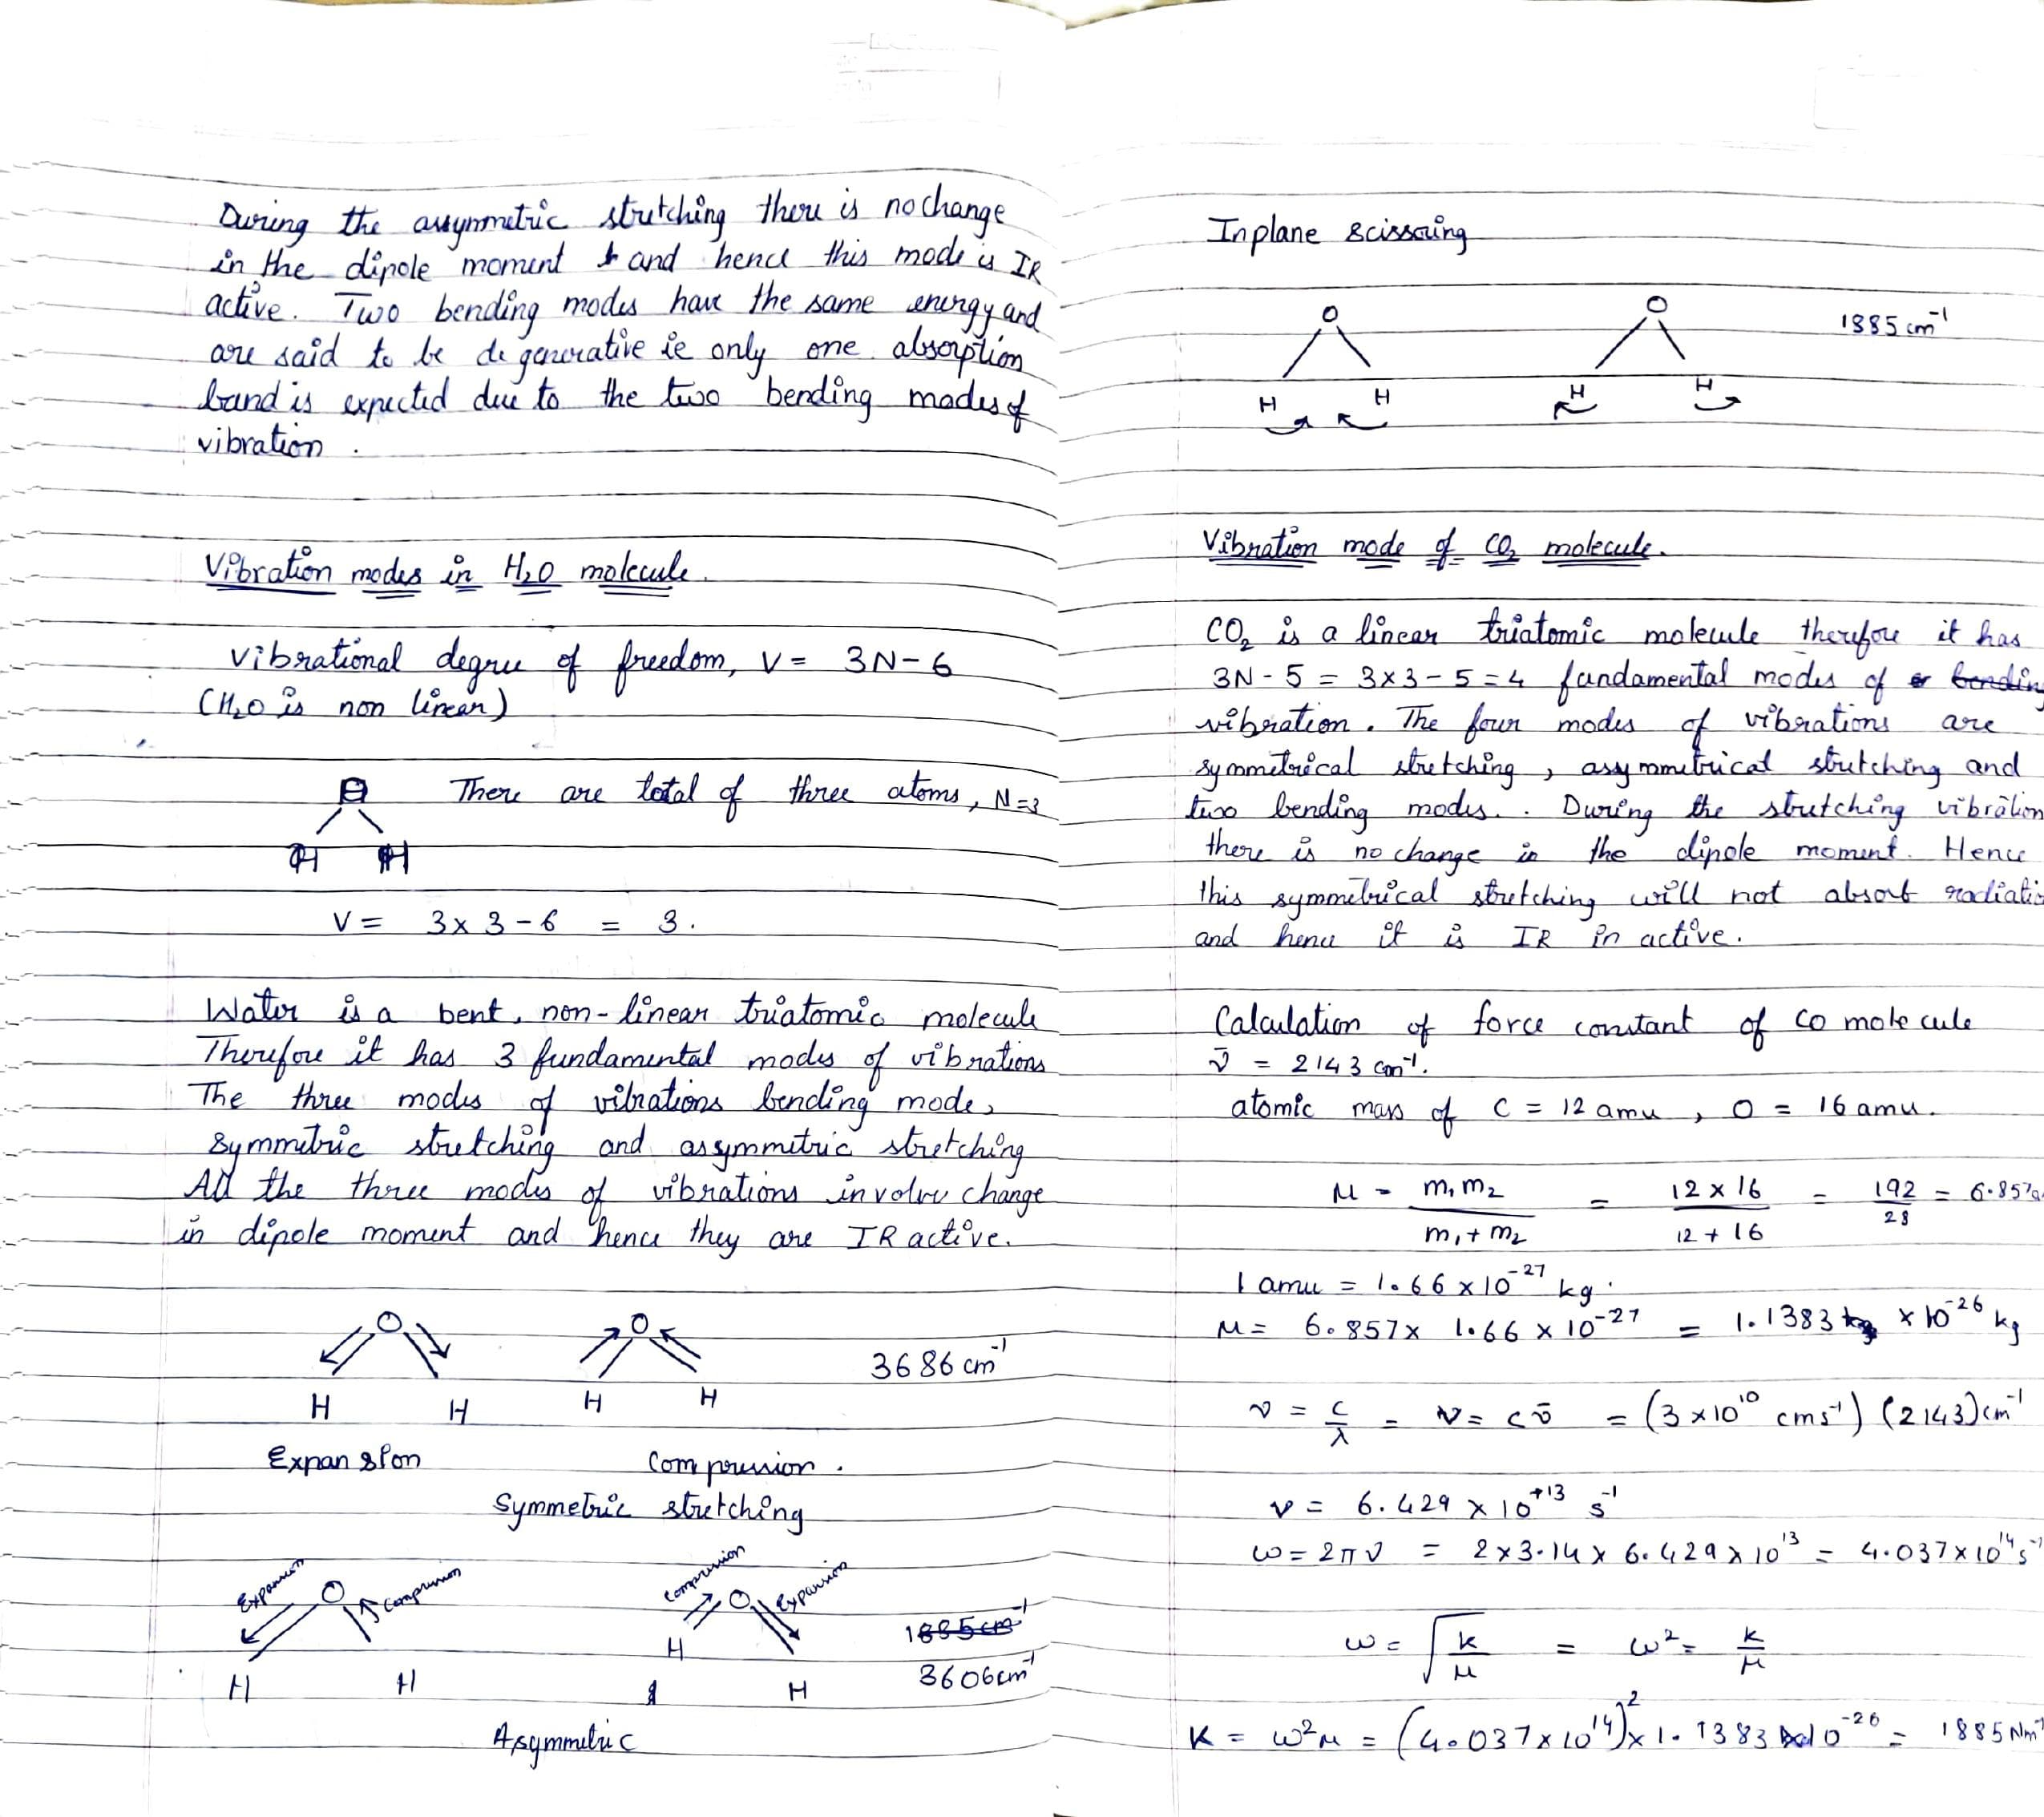 During the assymmetric stretching there is no change
in the dipole moment and hence this mode is IR
active. Two bending modes have the same energy and
are said to be degenerative ie only one absorption
band is expected due to the two bending modes of
vibration.
Vibration modes in H₂O molecule.
Vibrational degree of freedom, V = 3N-6
(H₂O is non linear)
O There are total of three atoms, N=3
H H
V = 3x3-6 = 3.
Water is a bent, non-linear triatomic molecule
Therefore it has 3 fundamental modes of vibrations
The three modes of vibrations bending mode,
symmetric stretching and assymmetric stretching
All the three modes of vibrations involve change
in dipole moment and hence they are IR active.
O O
3686 cm⁻¹
H H H H
Expansion Compression.
Symmetric stretching
Expansion O Compression Compression O Expansion
1885 cm⁻¹
3606 cm⁻¹
H H H H
Asymmetric
Inplane scissoring
O O 1885 cm⁻¹
H H H H
Vibration mode of CO₂ molecule.
CO₂ is a linear triatomic molecule therefore it has
3N-5 = 3x3-5=4 fundamental modes of or bending
vibration. The four modes of vibrations are
symmetrical stretching, asymmetrical stretching and
two bending modes.. During the stretching vibration
there is no change in the dipole moment. Hence
this symmetrical stretching will not absorb radiatio
and hence it is IR in active.
Calculation of force constant of CO molecule
ν̄ = 2143 cm⁻¹.
atomic mass of C = 12 amu, O = 16 amu.
μ = m₁m₂ / m₁+m₂ = 12 x 16 / 12 + 16 = 192 / 28 = 6.857a
1 amu = 1.66 x 10⁻²⁷ kg.
μ = 6.857 x 1.66 x 10⁻²⁷ = 1.1383 kg x 10⁻²⁶ kg
ν = c/λ = ν = cν̄ = (3 x 10¹⁰ cms⁻¹) (2143)cm⁻¹
ν = 6.429 x 10⁺¹³ s⁻¹
ω = 2πν = 2x3.14 x 6.429 x 10¹³ = 4.037x10¹⁴s⁻¹
ω = √k/μ = ω² = k/μ
K = ω²μ = (4.037 x 10¹⁴)² x 1.1383 x10⁻²⁶ = 1885 Nm⁻¹